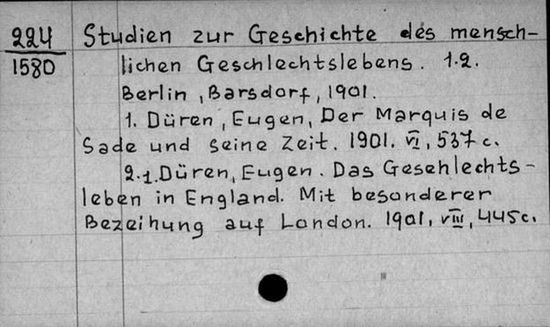 224 Studien zur Geschichte des mensch-
1580 lichen Geschlechtslebens. 1.2.
Berlin, Barsdorf, 1901.
1. Düren, Eugen, Der Marquis de
Sade und seine Zeit. 1901. VI, 537 c.
2.1. Düren, Eugen. Das Geschlechts-
leben in England. Mit besonderer
Bezeihung auf London. 1901, VIII, 445c.